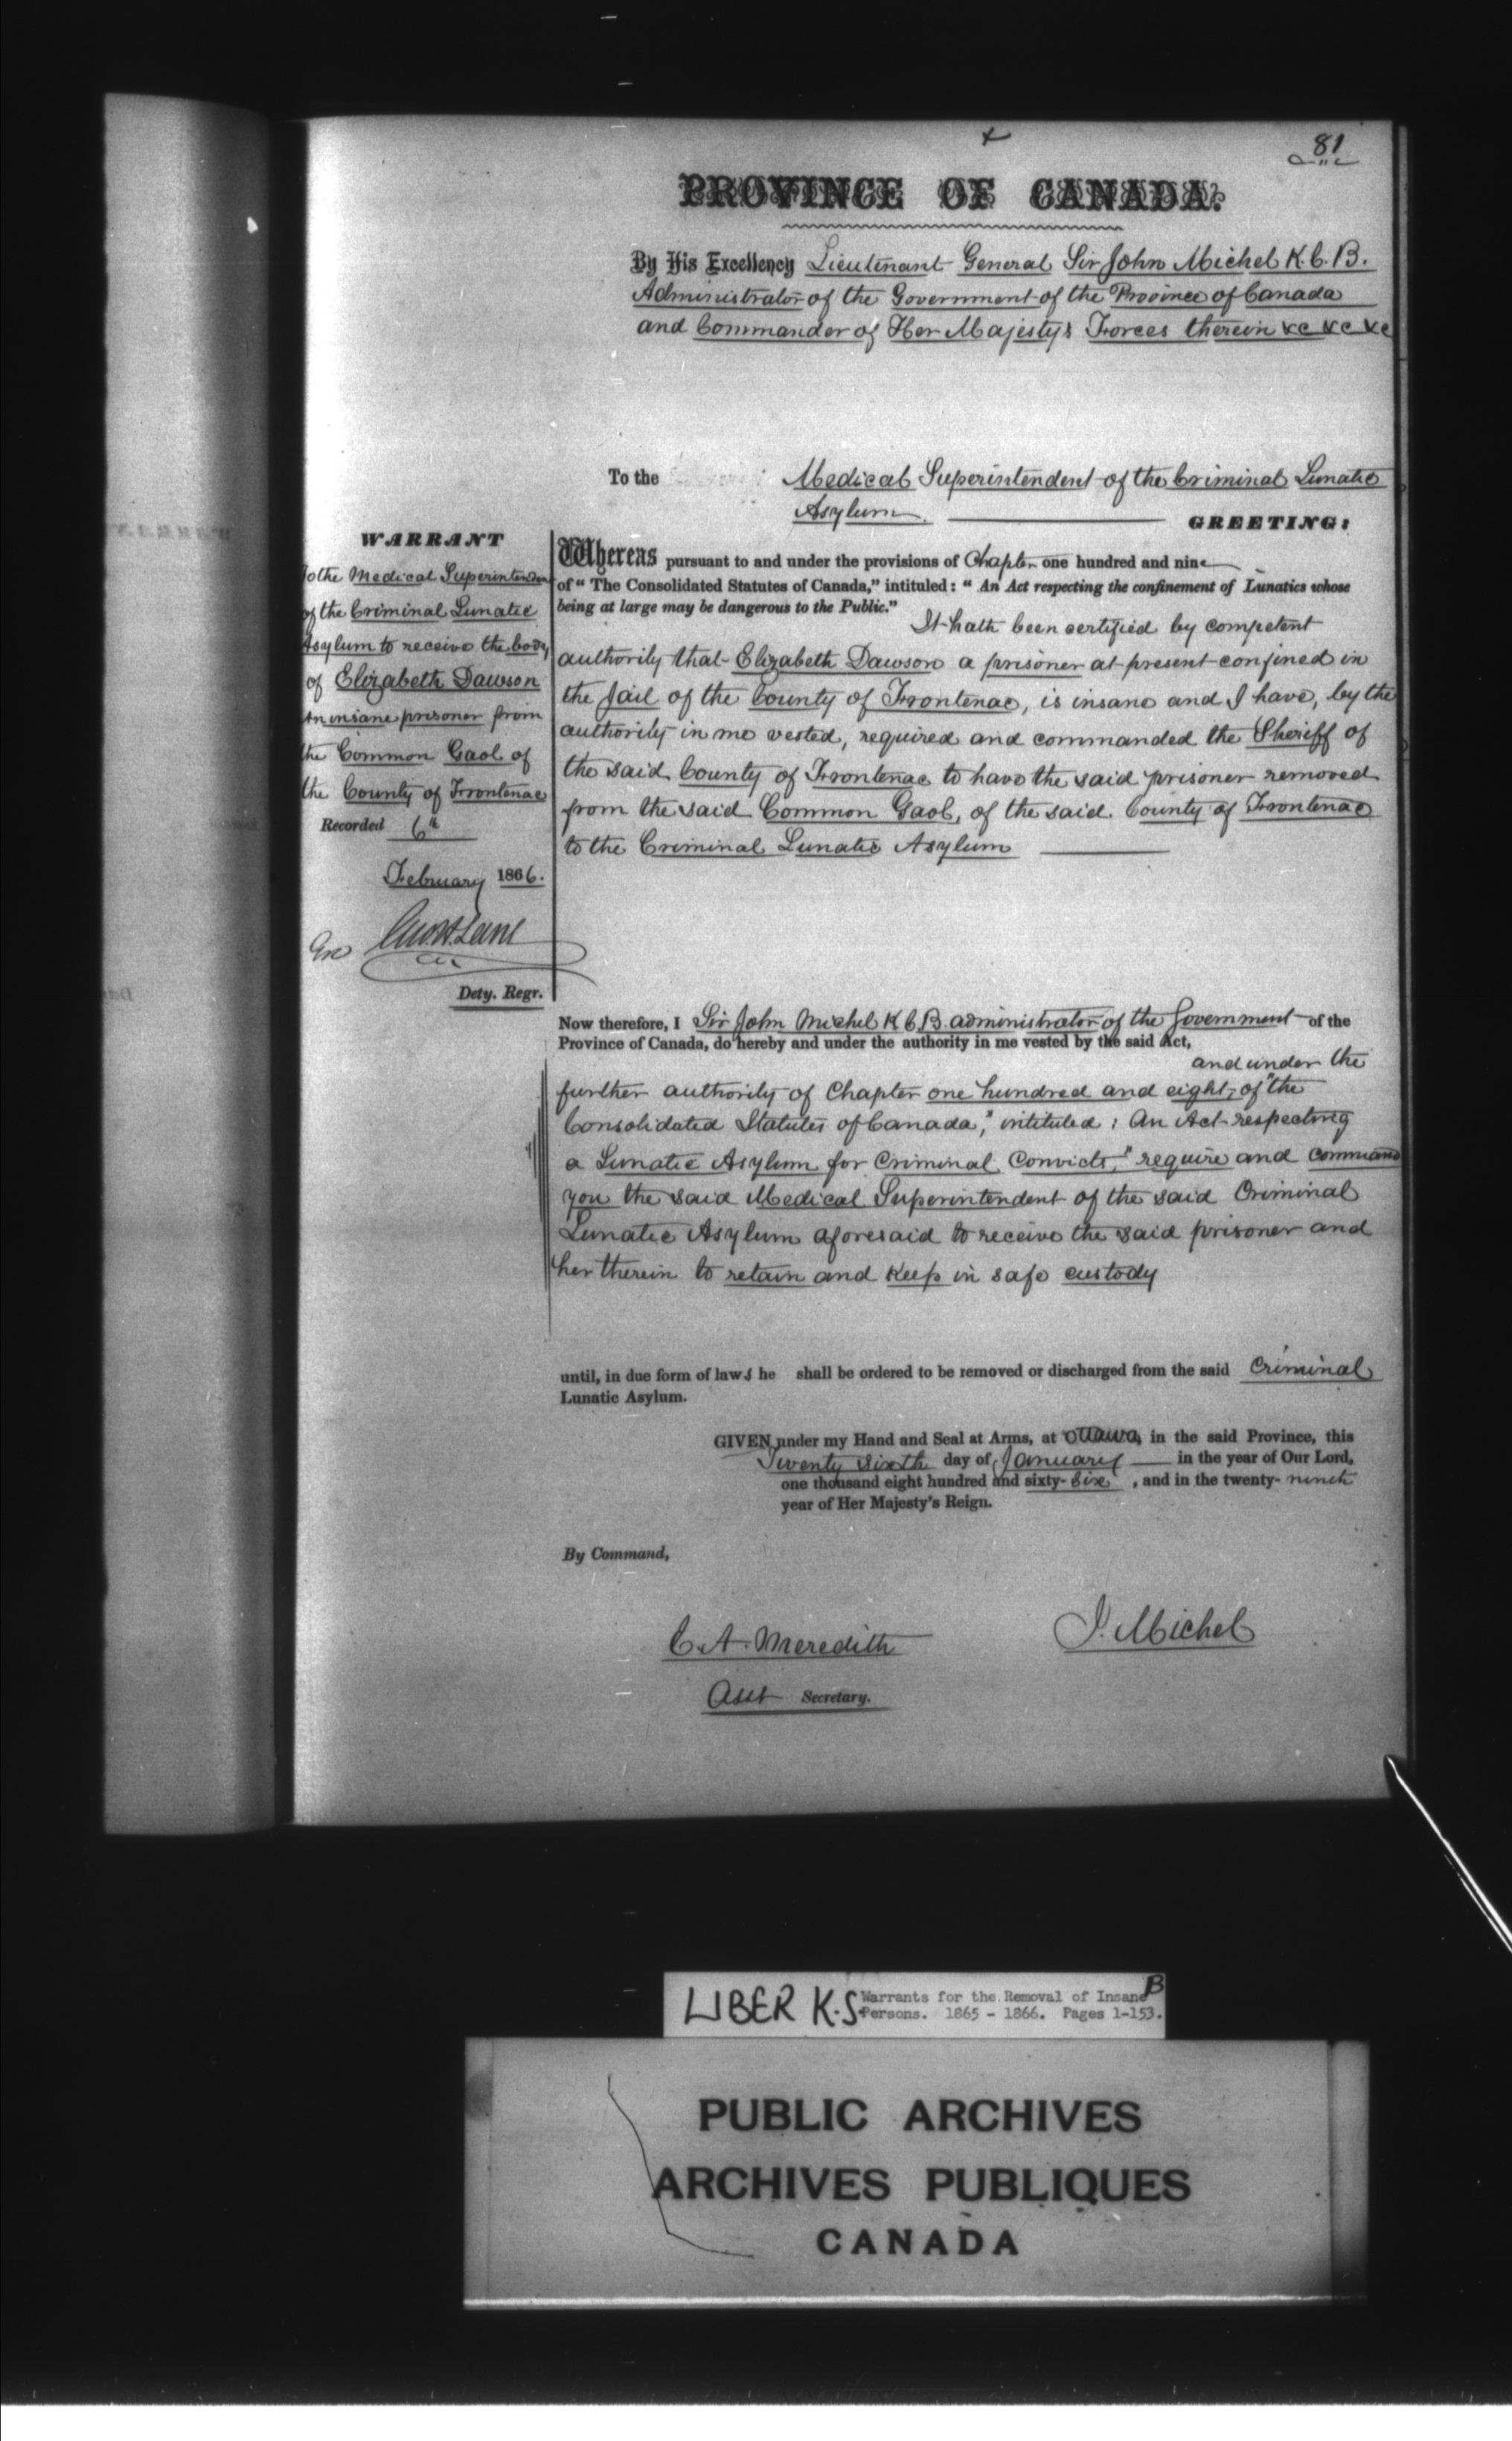 81
PROVINCE OF CANADA.
By His Excellency Lieutenant General Sir John Michel K.C.B.
Administrator of the Government of the Province of Canada
and Commander of Her Majestys Forces therein &c &c &c
To the Medical Superintendent of the Criminal Lunatic
Asylum.
GREETING:
WARRANT
To the Medical Superintendent
of the Criminal Lunatic
Asylum to receive the body
of Elizabeth Dawson
An insane prisoner from
the Common Gaol of
the County of Frontenac
Recorded 6th
February 1866.
Dety. Regr.
Whereas pursuant to and under the provisions of Chapter one hundred and nine
of "The Consolidated Statutes of Canada," intituled: "An Act respecting the confinement of Lunatics whose
being at large may be dangerous to the Public."
It hath been certified by competent
authority that Elizabeth Dawson a prisoner at present confined in
the Jail of the County of Frontenac, is insane and I have, by the
authority in me vested, required and commanded the Sheriff of
the said County of Frontenac to have the said prisoner removed
from the said Common Gaol, of the said County of Frontenac
to the Criminal Lunatic Asylum
Now therefore, I Sir John Michel K C B. administrator of the Government of the
Province of Canada, do hereby and under the authority in me vested by the said Act,
and under the
further authority of Chapter one hundred and eight, of "the
Consolidated Statutes of Canada," intituled: An Act respecting
a Lunatic Asylum for Criminal Convicts," require and command
you the said Medical Superintendent of the said Criminal
Lunatic Asylum aforesaid to receive the said prisoner and
her therein to retain and keep in safe custody
until, in due form of law s he shall be ordered to be removed or discharged from the said Criminal
Lunatic Asylum.
GIVEN under my Hand and Seal at Arms, at Ottawa, in the said Province, this
Twenty Sixth day of January in the year of Our Lord,
one thousand eight hundred and sixty-six, and in the twenty-nineth
year of Her Majesty's Reign.
By Command,
E. A. Meredith
J. Michel
Asst Secretary.
LIBER K.S. Warrants for the Removal of Insane B
Persons. 1865 - 1866. Pages 1-153.
PUBLIC ARCHIVES
ARCHIVES PUBLIQUES
CANADA